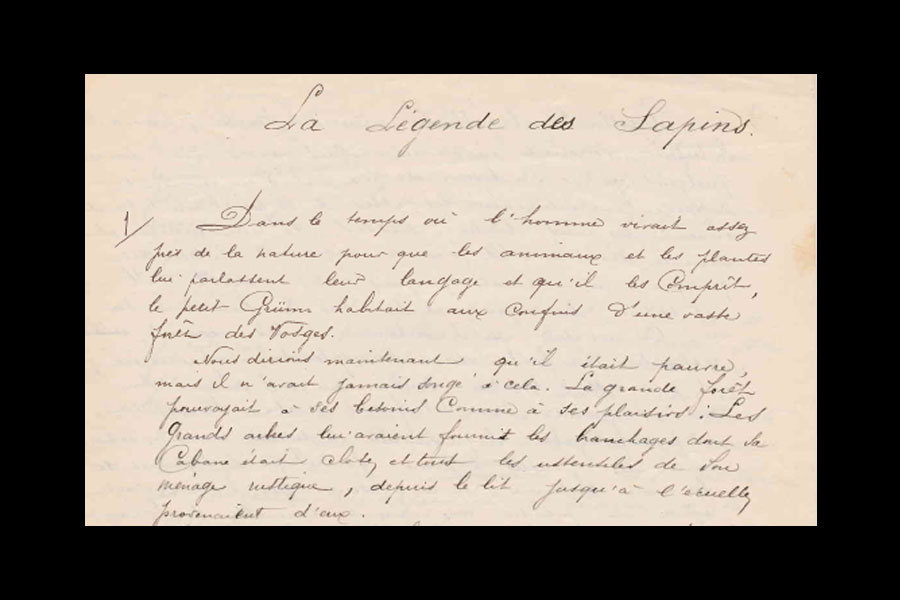 La Légende des Sapins.
1/ Dans le temps où l'homme vivait assez
près de la nature pour que les animaux et les plantes
lui parlassent leur langage et qu'il les Comprît,
le petit Grümm habitait aux Confins d'une vaste
forêt des Vosges.
Nous dirions maintenant qu'il était pauvre,
mais il n'avait jamais songé à cela. La grande forêt
pourvoyait à ses besoins Comme à ses plaisirs : Les
Grands arbres lui avaient fournit les branchages dont sa
Cabane était close, et tout les ustensiles de son
ménage rustique, depuis le lit jusqu'à l'écuelle,
provenaient d'eux.